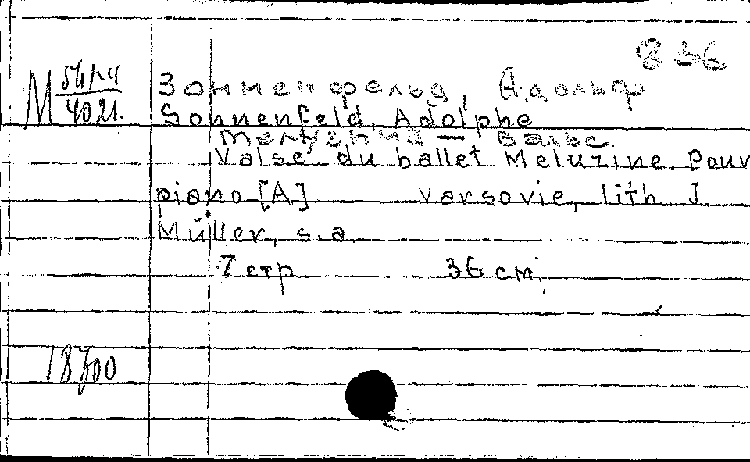 836
М 5614/4021.
Зонненфельд, Адольф
Sonnenfeld, Adolphe
Мелузина — вальс.
Valse du ballet Meluzine. Pour
piano [A] Varsovie, lith. J.
Müller, s.a.
7 стр 36 см.
18700